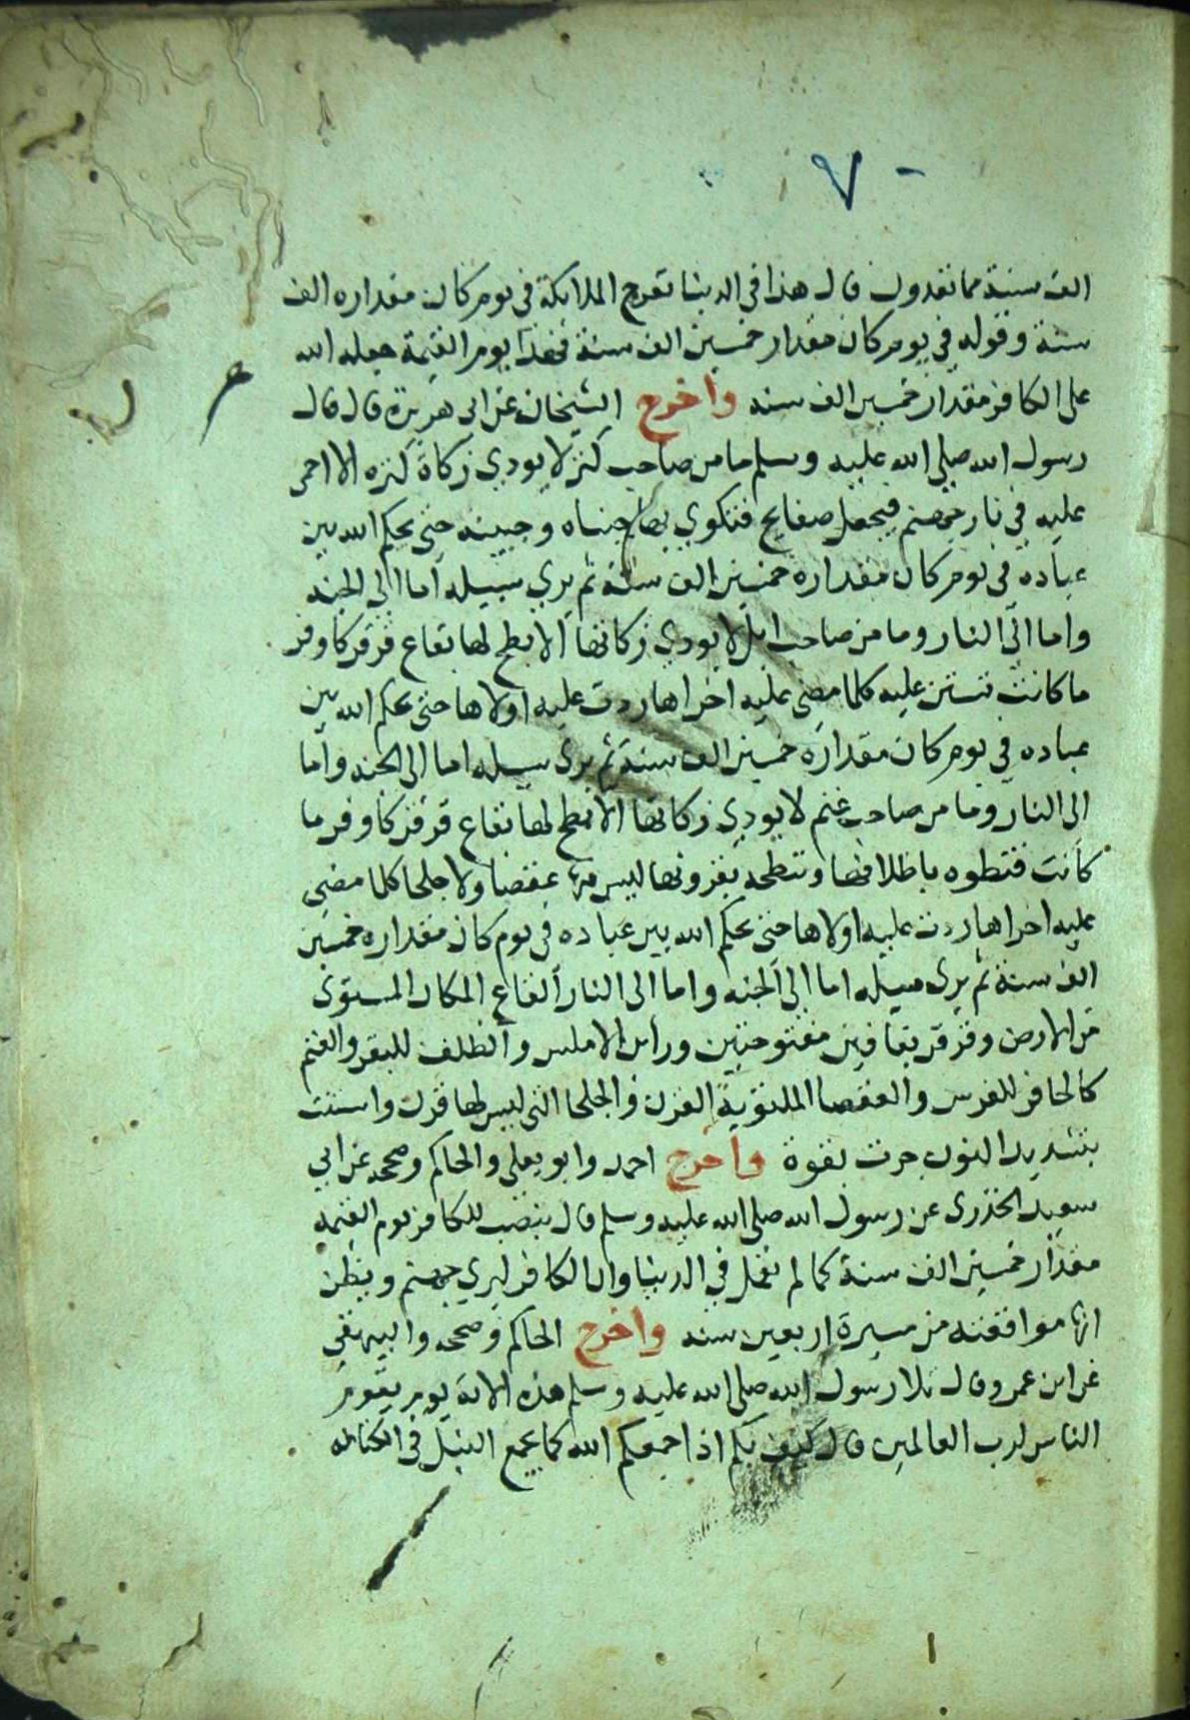 ٧٠
الف سنة مما تعدون قال هذا في الدنيا تعرج الملايكة في يوم كان مقداره الف
سنة وقوله في يوم كان مقدار خمسين الف سنة فهذا يوم القيمة جعله الله
على الكافر مقدار خمسين الف سنه واخرج الشيخان عن ابي هريرة قال قال
رسول الله صلى الله عليه وسلم ما من صاحب كنز لا يودي زكاة كنزه الا احمى
عليه في نار جهنم فيجعل صفايح فتكوى بها جنباه وجبينه حتى يحكم الله بين
عباده في يوم كان مقداره خمسين الف سنة ثم يرى سبيله اما الى الجنه
واما الى النار وما من صاحب ابل لا يودي زكاتها الا بطح لها بقاع قرقر كاوفر
ما كانت تستن عليه كلما مضى عليه اخراها ردت عليه اولاها حتى يحكم الله بين
عباده في يوم كان مقداره خمسين الف سنة ثم يرى سبيله اما الى الجنه واما
الى النار وما من صاحب غنم لا يودي زكاتها الا بطح لها بقاع قرقر كاوفر ما
كانت فتطوه باظلافها وتنطحه بقرونها ليس فيها عقصا ولا جلحا كلما مضى
عليه اخراها ردت عليه اولاها حتى يحكم الله بين عباده في يوم كان مقداره خمسين
الف سنة ثم يرى سبيله اما الى الجنه واما الى النار القاع المكان المستوى
من الارض وقرقر بقافين مفتوحتين وراس الاملس والظلف للبقر والغنم
كالحافر للفرس والعقصا الملتوية القرن والجلحا التي ليس لها قرن واستنت
بتشديد النون جرت بقوة واخرج احمد وابو يعلى والحاكم وصححه عن ابي
سعيد الخذرى عن رسول الله صلى الله عليه وسلم قال ينصب للكافر يوم القيمه
مقدار خمسين الف سنة كما لم يعمل في الدنيا وان الكافر ليرى جهنم ويظن
انها مواقعته من مسيرة اربعين سنه واخرج الحاكم وصححه والبيهقي
عن ابن عمرو قال تلا رسول الله صلى الله عليه وسلم هذه الاية يوم يقوم
الناس لرب العالمين قال كيف بكم اذا جمعكم الله كما يجمع النبل في الكنانه